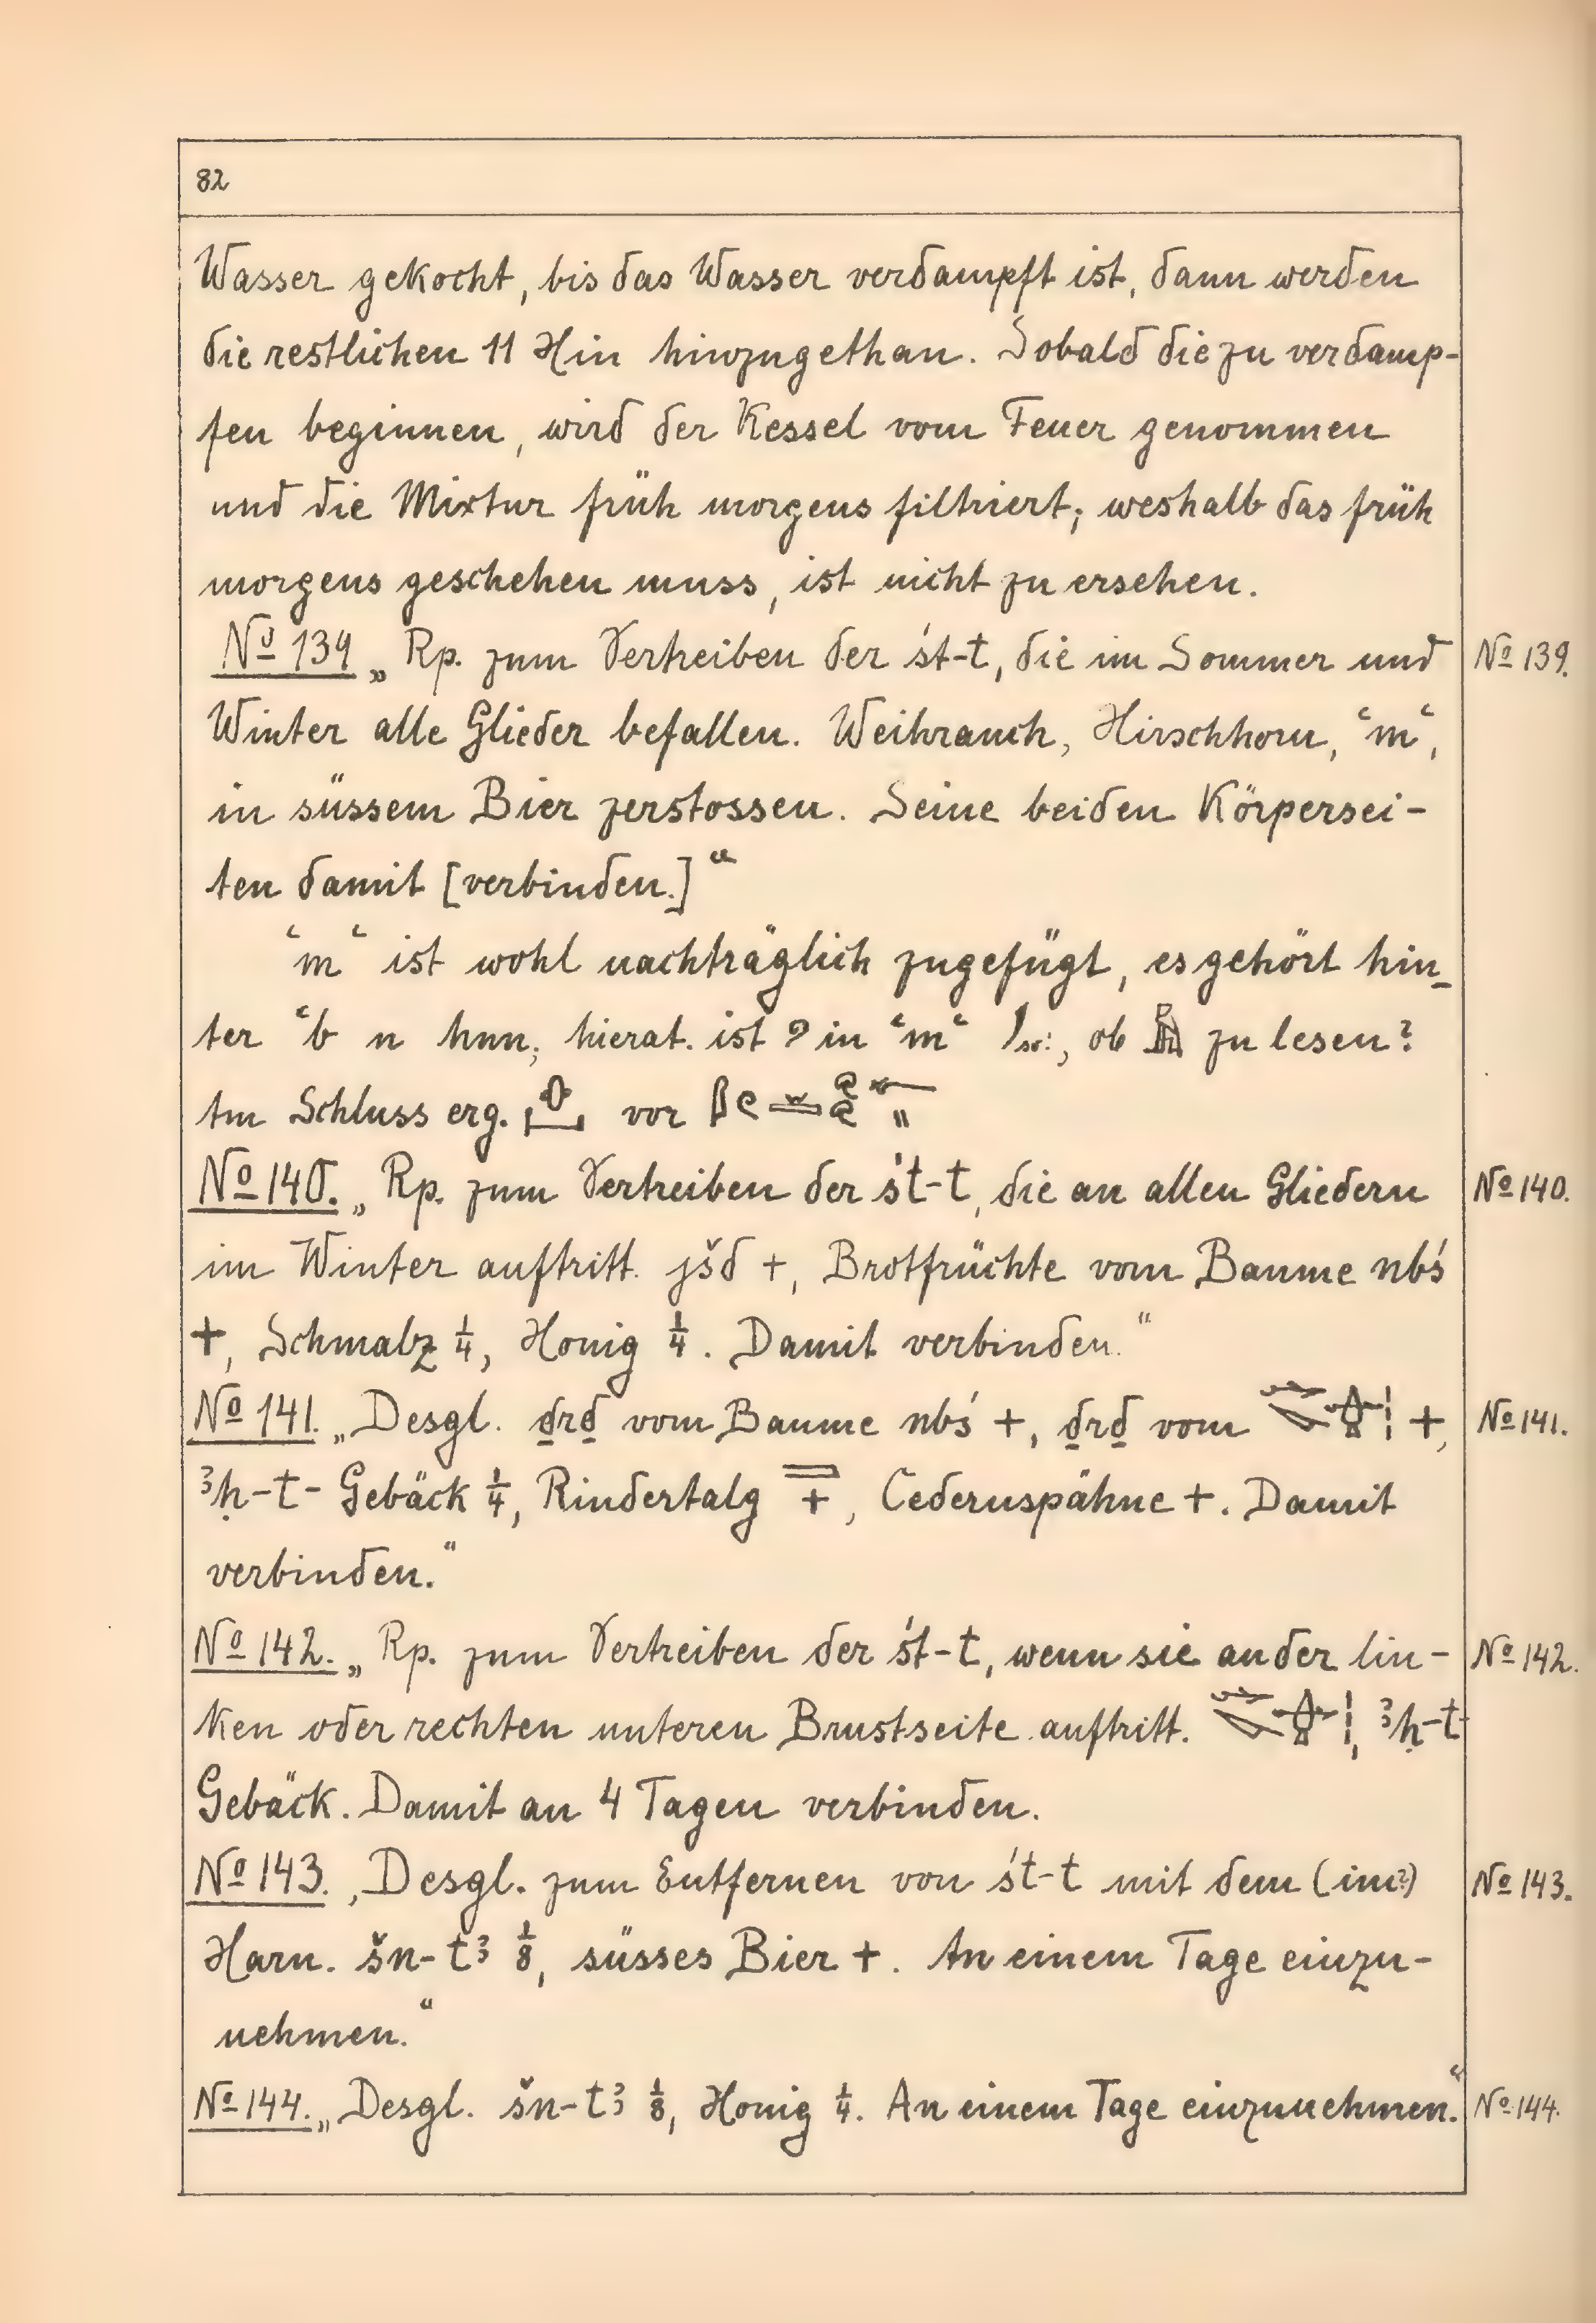 82
Wasser gekocht, bis das Wasser verdampft ist, dann werden
die restlichen 11 Hin hinzugethan. Sobald die zu verdamp-
fen beginnen, wird der Kessel vom Feuer genommen
und die Mixtur früh morgens filtriert; weshalb das früh
morgens geschehen muss, ist nicht zu ersehen.
No 139 „Rp. zum Vertreiben der ś't-t, die im Sommer und No 139.
Winter alle Glieder befallen. Weihrauch, Hirschhorn, ꜥmꜥ,
in süssem Bier zerstossen. Seine beiden Körpersei-
ten damit [verbinden.]“
ꜥmꜥ ist wohl nachträglich zugefügt, es gehört hin-
ter ꜥb n hnn; hierat. ist in ꜥmꜥ, ob zu lesen?
Am Schluss erg. vor
No 140. „Rp. zum Vertreiben der śt-t, die an allen Gliedern No 140.
im Winter auftritt. jšd +, Brotfrüchte vom Baume nbś
+, Schmalz ¼, Honig ¼. Damit verbinden.“
No 141. „Desgl. ḏrḏ vom Baume nbś +, ḏrḏ vom +, No 141.
ꜣḥ-t-Gebäck ¼, Rindertalg +, Cedernspähne +. Damit
verbinden.“
No 142. „Rp. zum Vertreiben der śt-t, wenn sie an der lin- No 142.
ken oder rechten unteren Brustseite auftritt. , ꜣḥ-t
Gebäck. Damit an 4 Tagen verbinden.
No 143. „Desgl. zum Entfernen von śt-t mit dem (im?) No 143.
Harn. šn-tꜣ ⅛, süsses Bier +. An einem Tage einzu-
nehmen.“
No 144. „Desgl. šn-tꜣ ⅛, Honig ¼. An einem Tage einzunehmen.“ No 144.